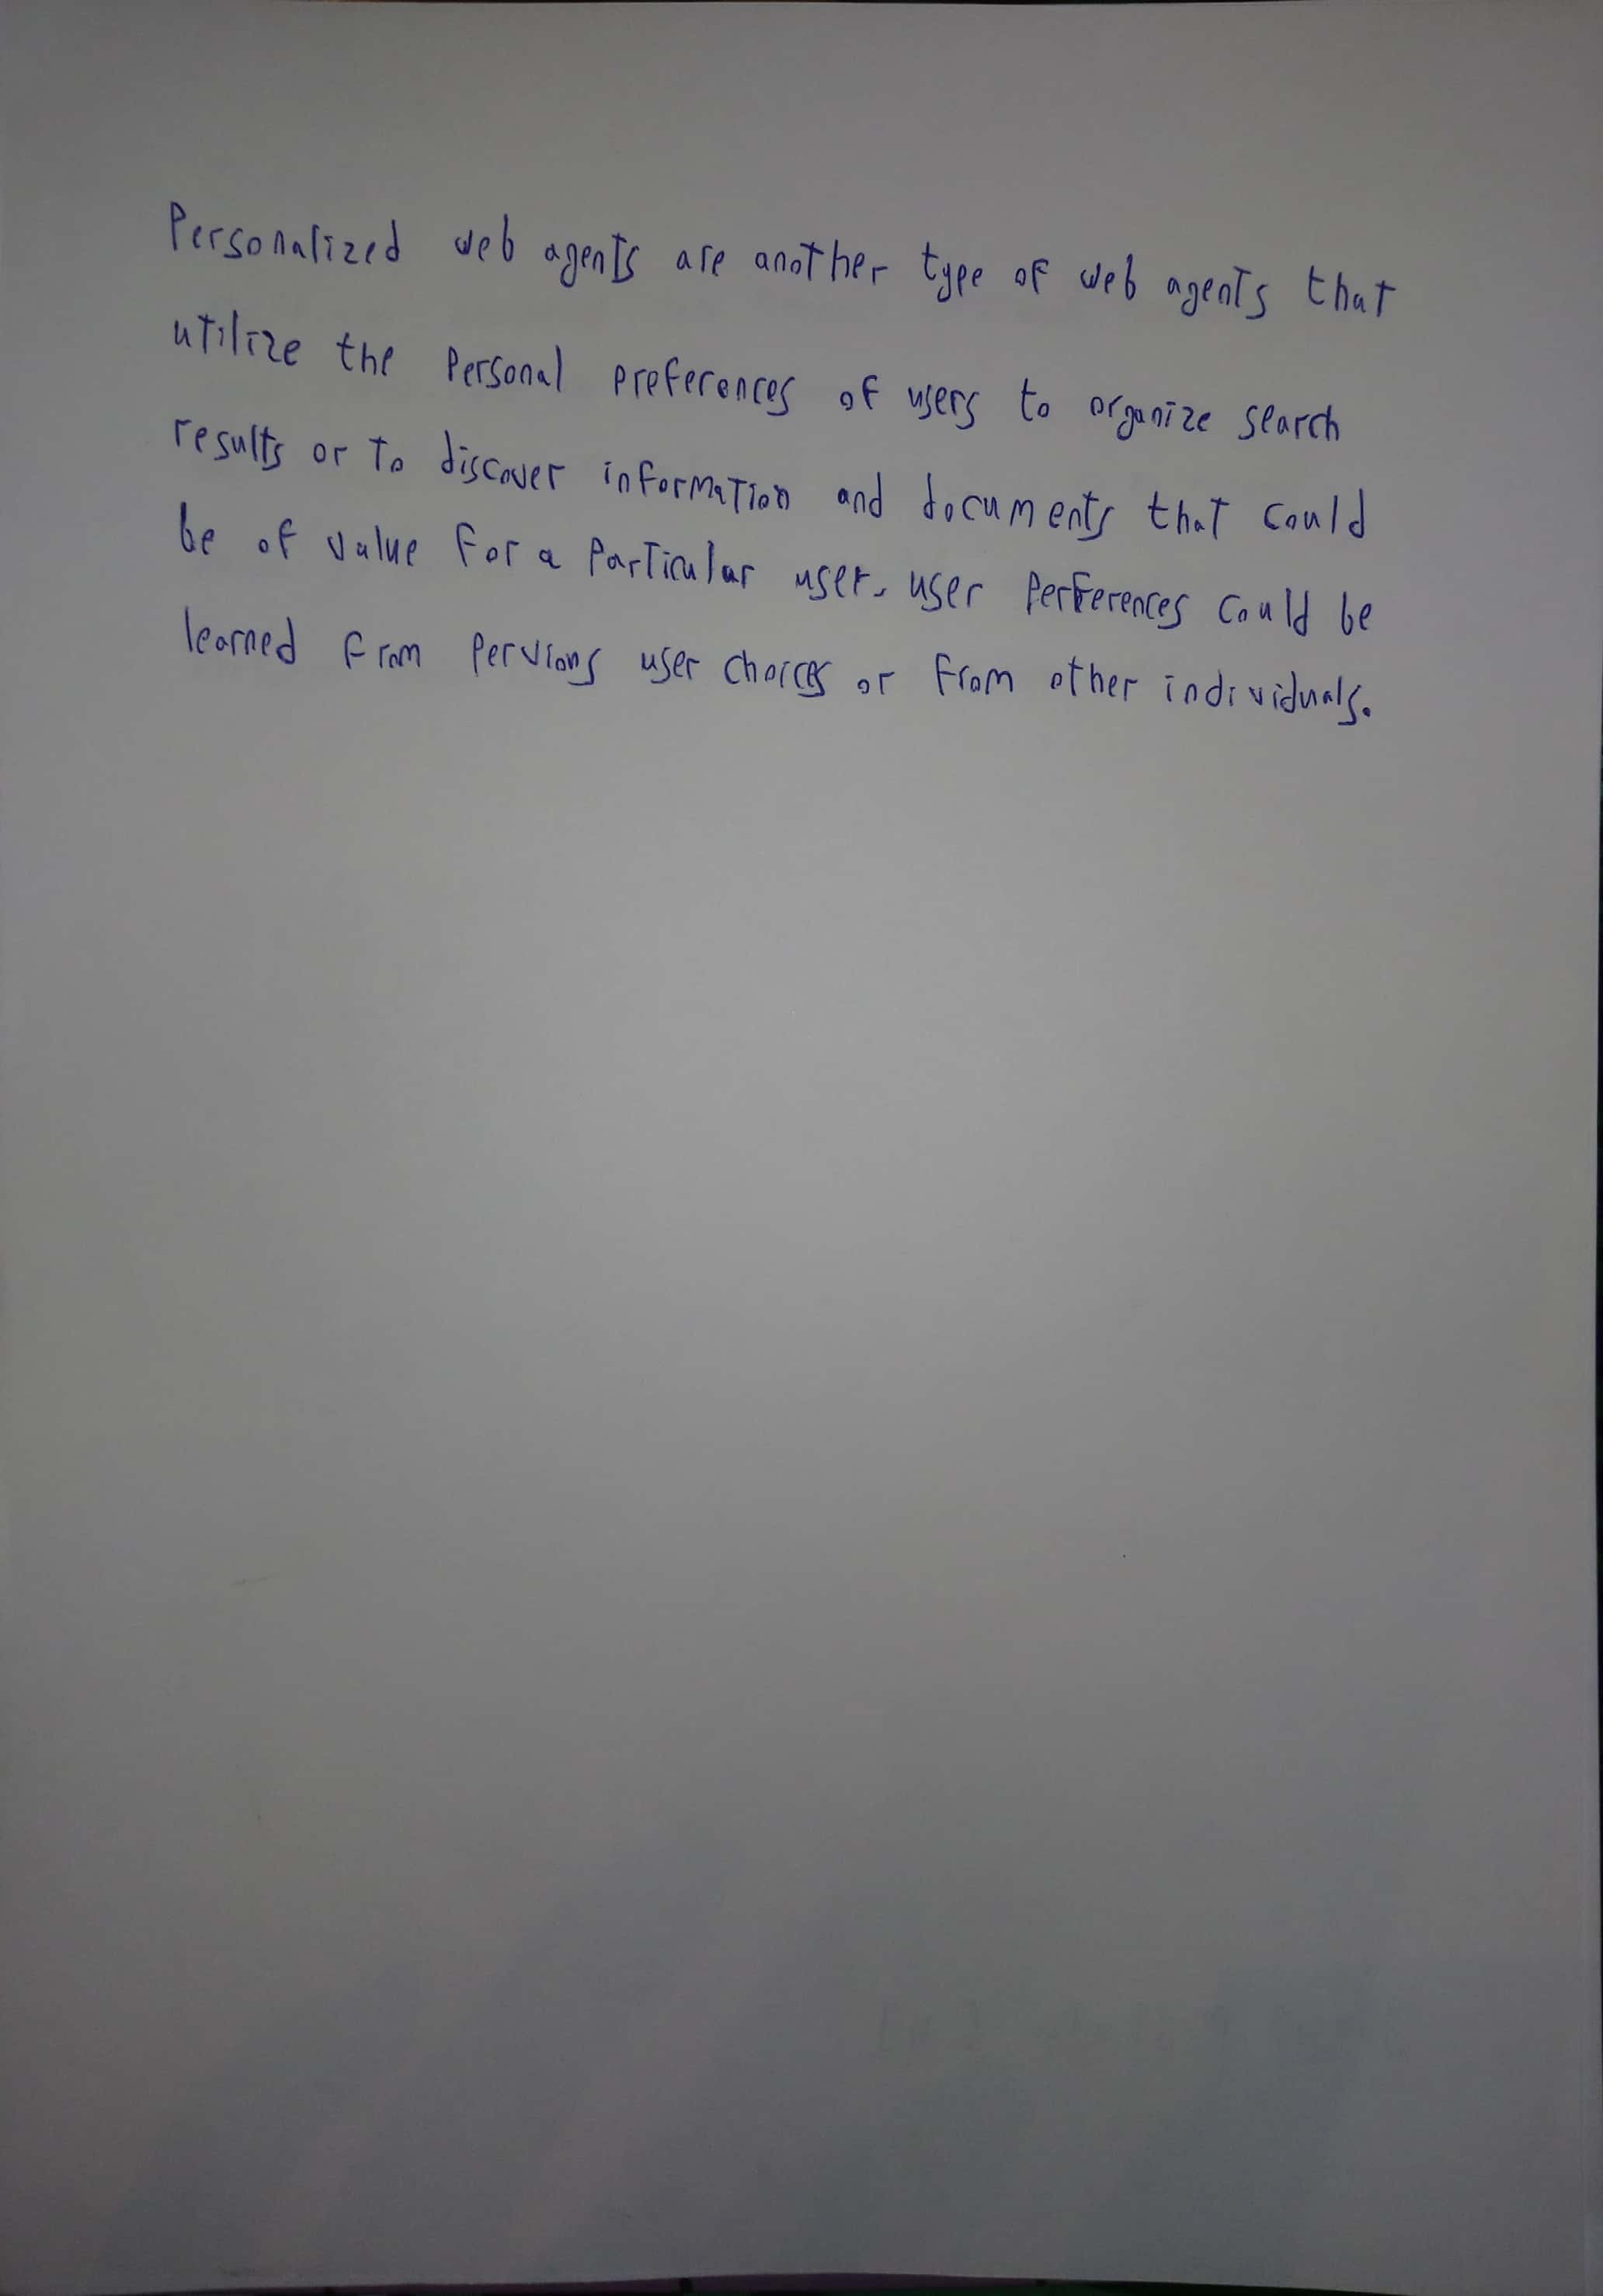 Personalized web agents are another type of web agents that
utilize the Personal preferences of users to organize search
results or to discover information and documents that could
be of value for a Particular user. user Perferences could be
learned from Pervious user choices or from other individuals.